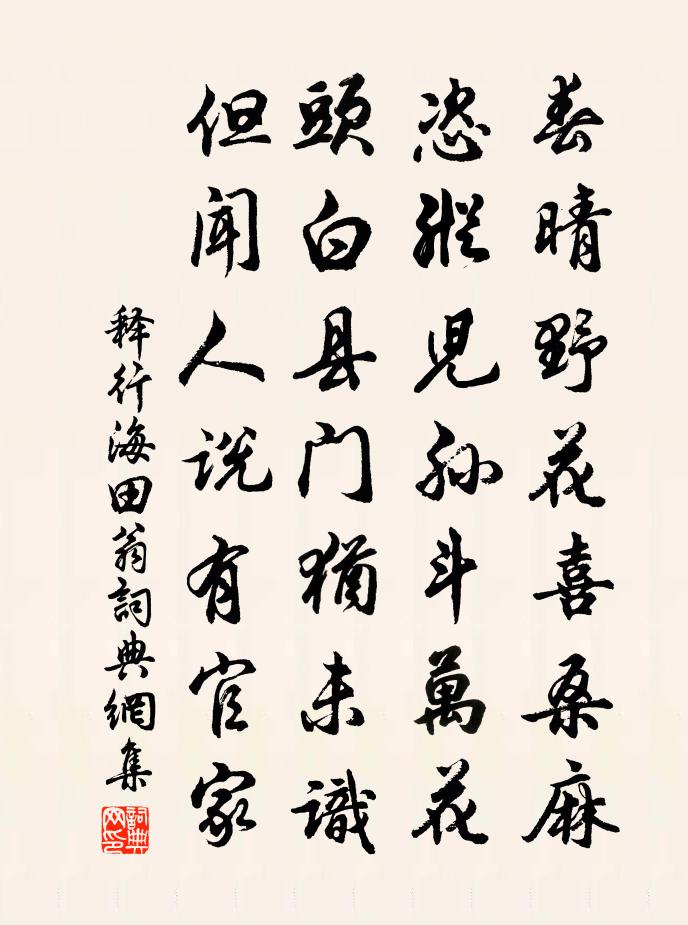 春晴野花喜桑麻
恣縱兒孫斗萬花
頭白县门猶未識
但闻人说有官家
释行海田翁詞典網集
詞典网印